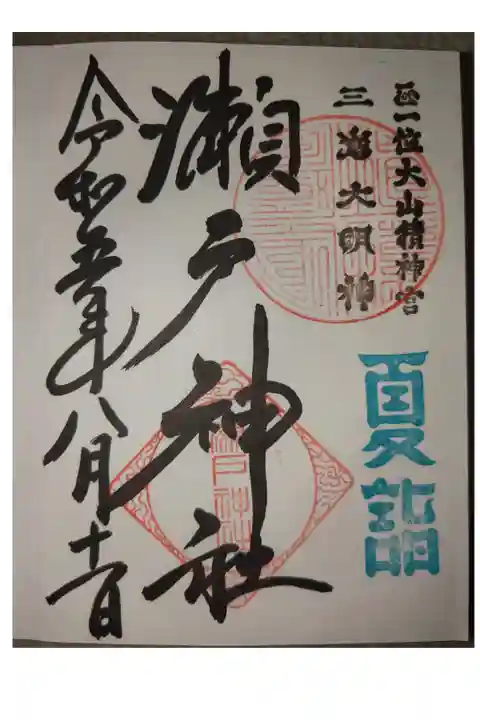 正一位大山積神宮
三嶌大明神
夏詣
瀬戸神社
令和五年八月十一日